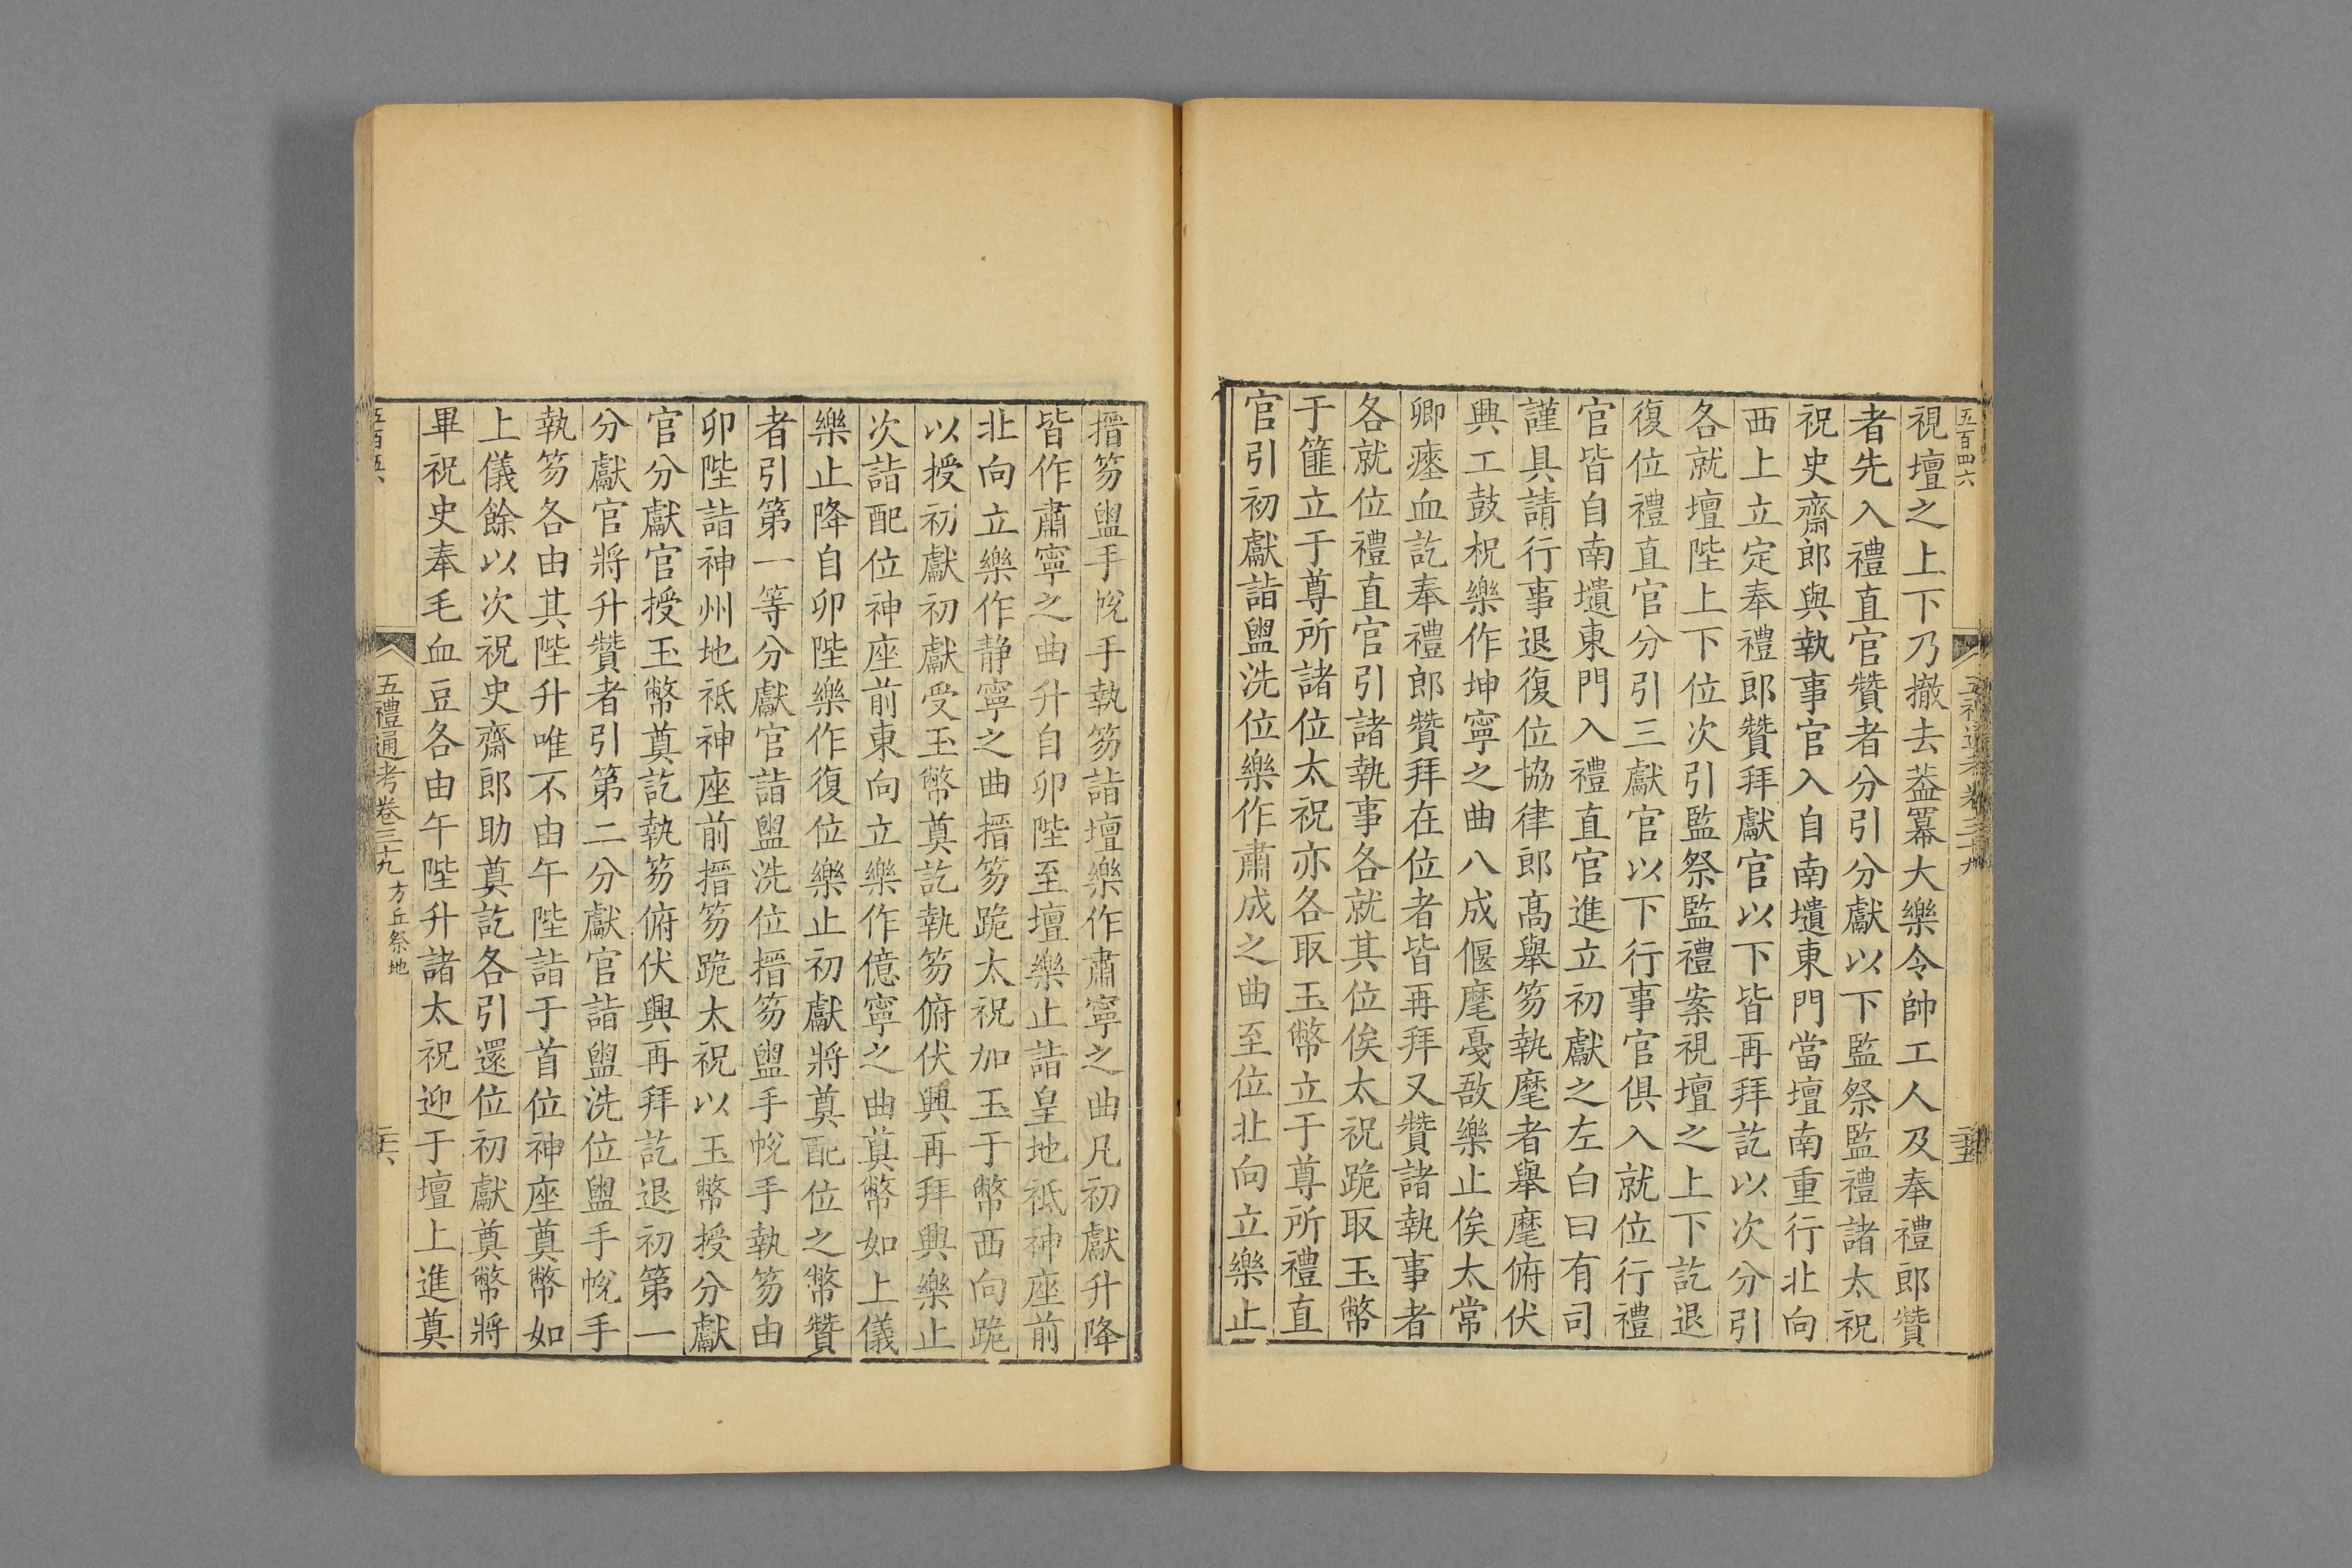 五百四六
視壇之上下乃撤去葢冪大樂令帥工人及奉禮郎贊
者先入禮直官贊者分引分獻以下監祭監禮諸太祝
祝史齋郎與執事官入自南壝東門當壇南重行北向
西上立定奉禮郎贊拜獻官以下皆再拜訖以次分引
各就壇陛上下位次引監祭監禮案視壇之上下訖退
復位禮直官分引三獻官以下行事官俱入就位行禮
官皆自南壝東門入禮直官進立初獻之左白曰有司
謹具請行事退復位協律郎髙舉笏執麾者舉麾俯伏
興工鼓柷樂作坤寧之曲八成偃麾戞敔樂止俟太常
卿瘞血訖奉禮郎贊拜在位者皆再拜又贊諸執事者
各就位禮直官引諸執事各就其位俟太祝跪取玉幣
于篚立于尊所諸位太祝亦各取玉幣立于尊所禮直
官引初獻詣盥洗位樂作肅成之曲至位北向立樂止
搢笏盥手帨手執笏詣壇樂作肅寧之曲凡初獻升降
皆作肅寧之曲升自卯陛至壇樂止詣皇地祗神座前
北向立樂作静寧之曲搢笏跪太祝加玉于幣西向跪
以授初獻初獻受玉幣奠訖執笏俯伏興再拜興樂止
次詣配位神座前東向立樂作億寧之曲奠幣如上儀
樂止降自卯陛樂作復位樂止初獻將奠配位之幣贊
者引第一等分獻官詣盥洗位搢笏盥手帨手執笏由
卯陛詣神州地祗神座前搢笏跪太祝以玉幣授分獻
官分獻官授玉幣奠訖執笏俯伏興再拜訖退初第一
分獻官將升贊者引第二分獻官詣盥洗位盥手帨手
執笏各由其陛升唯不由午陛詣于首位神座奠幣如
上儀餘以次祝史齋郎助奠訖各引還位初獻奠幣將
畢祝史奉毛血豆各由午陛升諸太祝迎于壇上進奠
五禮通考卷三十九 方丘祭地